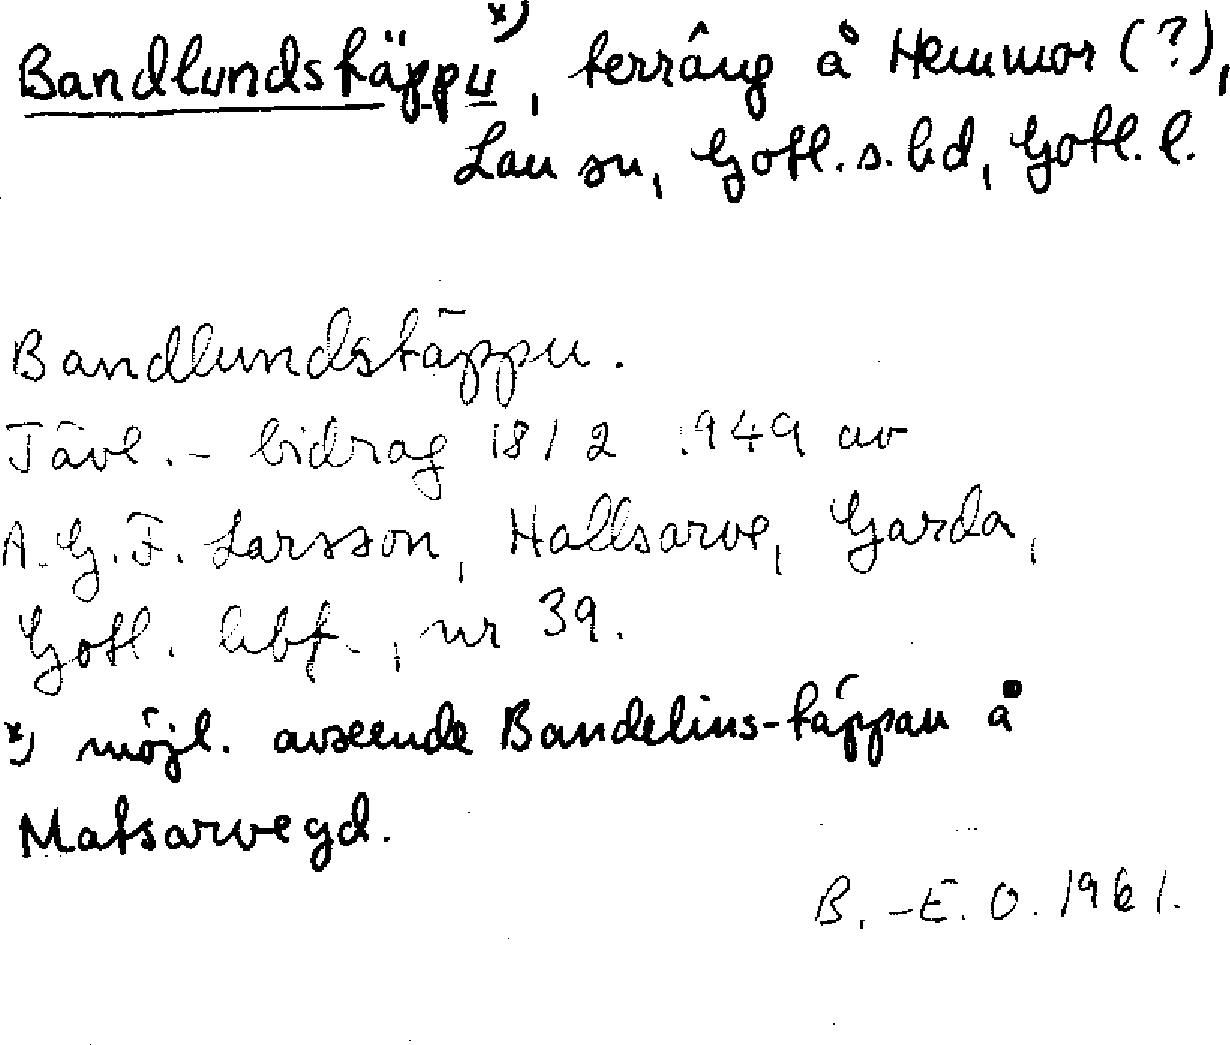 Bandlundstäppu *), terräng å Hemmor (?),
Lau sn, Gotl. s. hd, Gotl. l.
Bandlundstäppu.
Tävl. - bidrag 18/2 1949 av
A. G. F. Larsson, Hallsarve, Garda,
Gotl. hbf., nr 39.
*) möjl. avseende Bandelins-täppan å
Matsarve gd.
B.-E. O. 1961.